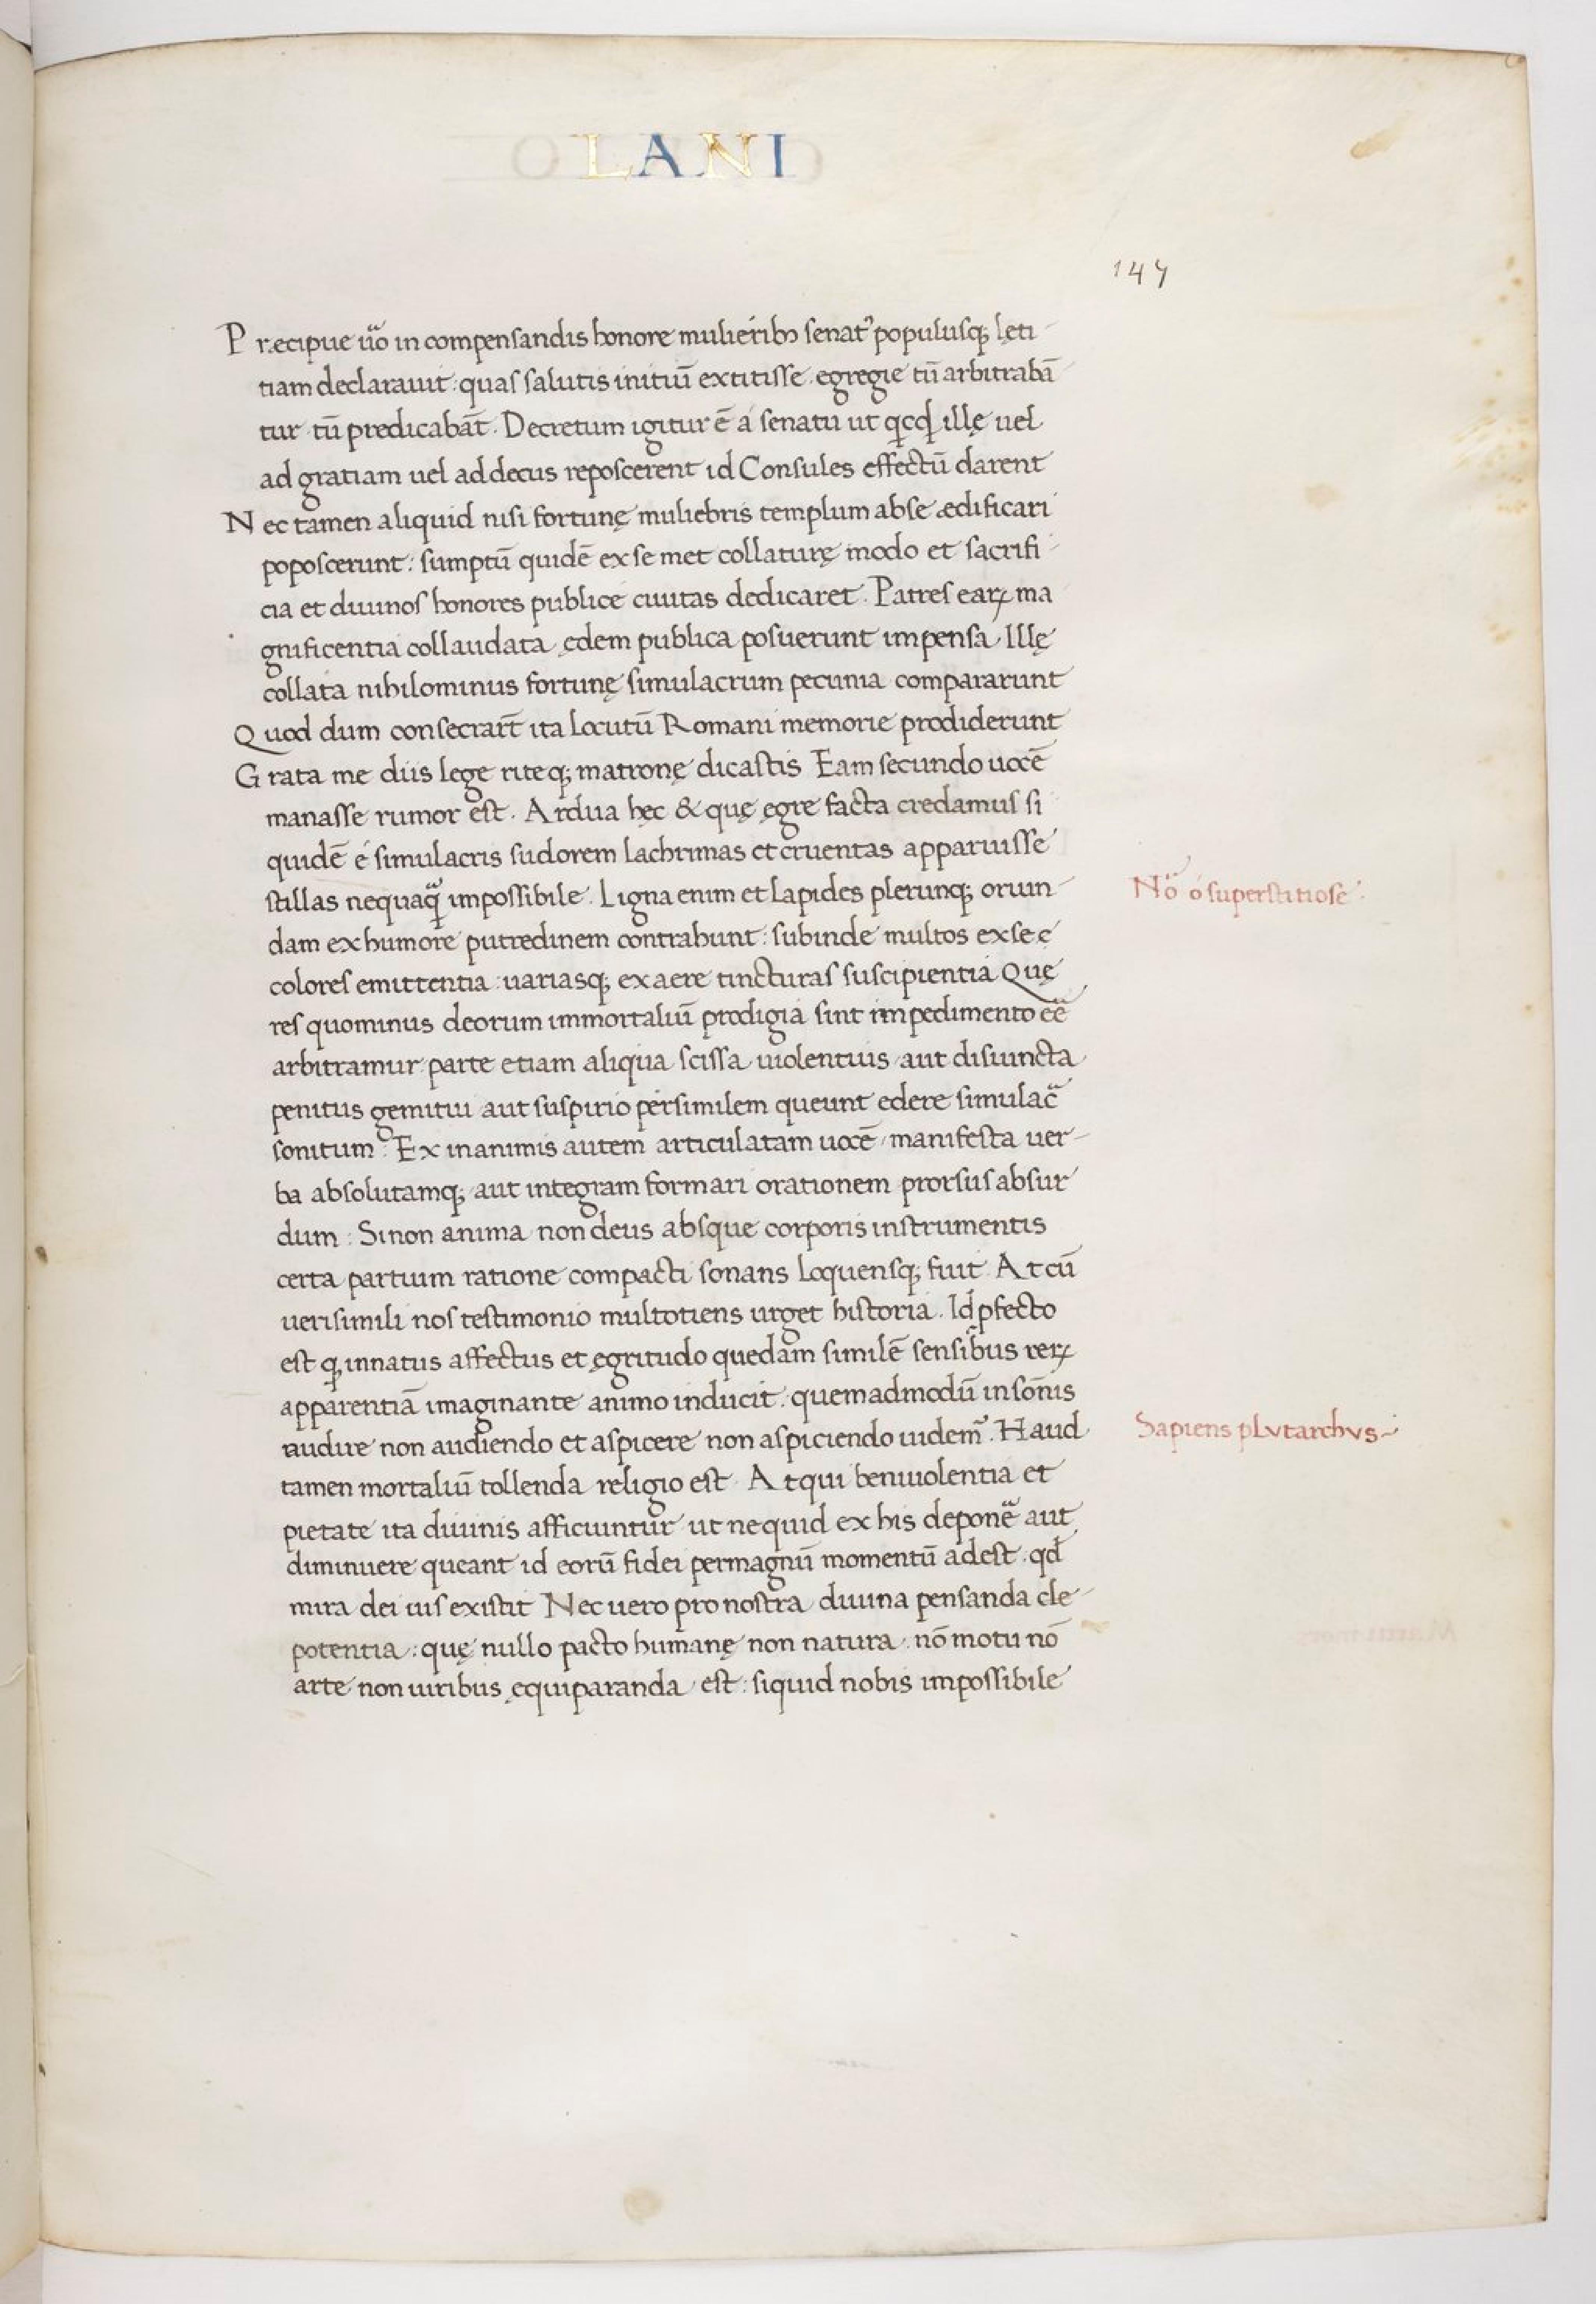 LANI
147
Precipue uͣo in compensandis honore mulieribꝫ senatꝰ populusqꝫ lęti
tiam declarauit: quas salutis initiū extitisse egregie tū arbitrabā
tur tū predicabāt. Decretum igitur ē a senatu ut qͥcqͥd illę uel
ad gratiam uel ad decus reposcerent id Consules effectū darent
Nec tamen aliquid nisi fortunę muliebris templum abse ædificari
poposcerunt: sumptū quidē ex se met collaturę modo et sacrifi
cia et diuinos honores publice ciuitas dedicaret. Patres earꝝ ma
gnificentia collaudata ędem publica posuerunt impensa Illę
collata nihilominus fortunę simulacrum pecunia compararunt
Quod dum consecrart̄ ita locutū Romani memorie prodiderunt
Grata me diis lege riteqꝫ matronę dicastis Eam secundo uocē
manasse rumor est. Ardua hęc & quę ęgre facta credamus si
quidē é simulacris sudorem lachrimas et cruentas apparuisse
stillas nequaqͣ impossibile. Ligna enim et lapides plerunqꝫ oriun
dam ex humore putredinem contrahunt: subinde multos ex se e
colores emittentia: uariasqꝫ ex aere tincturas suscipientia Quę
res quominus deorum immortaliū prodigia sint impedimento eē
arbitramur parte etiam aliqua scissa uiolentius aut disiuncta
penitus gemitui aut suspirio persimilem queunt edere simulacͣ
sonitum: Ex inanimis autem articulatam uocē manifesta uer
ba absolutamqꝫ aut integram formari orationem prorsus absur
dum: Sinon anima non deus absque corporis instrumentis
certa partium ratione compacti sonans loquensqꝫ fuit. At cū
uerisimili nos testimonio multotiens urget historia. Id ꝓfecto
est qꝫ innatus affectus et ęgritudo quedam similē sensibus rerꝝ
apparentiā imaginante animo inducit: quemadmodū in som̄nis
audire non audiendo et aspicere non aspiciendo uidemᷣ. Haud
tamen mortaliū tollenda religio est. Atqui beniuolentia et
pietate ita diuinis afficiuntur ut nequid ex his deponeͣ aut
diminuere queant id eorū fidei permagnū momentū adest: qđ
mira dei uis existit Nec uero pro nostra diuina pensanda ele
potentia: quę nullo pacto humanę non natura nō motu nō
arte non uiribus ęquiparanda est: siquid nobis impossibile
Nͣo ó superstitiose
Sapiens plvtarchvs